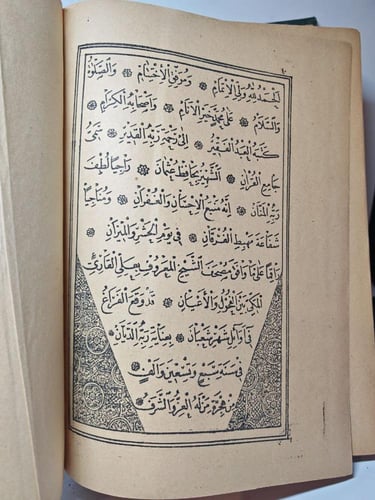 الحمد لله ولي الإتمام ۞ وموفق الاختتام ۞ والصلوة
والسلام ۞ على محمد خير الأنام ۞ وأصحابه الكرام ۞
كتبه العبد الفقير ۞ إلى رحمة ربه القدير ۞ سمي
جامع القرآن ۞ الشهير بحافظ عثمان ۞ راجيا لطف
ربه المنان ۞ إنه منبع الإحسان والغفران ۞ ومناجيا
شفاعة مهبط الفرقان ۞ في يوم الحشر والميزان ۞
راقما على ما وافق مصحف الشيخ المعروف بعلي القاري
المكي بين الفحول والأعيان ۞ قد وقع الفراغ
في أوائل شهر شعبان ۞ بعناية ربه الديان ۞
في سنة سبع وتسعين وألف
من هجرة من له العز والشرف ۞